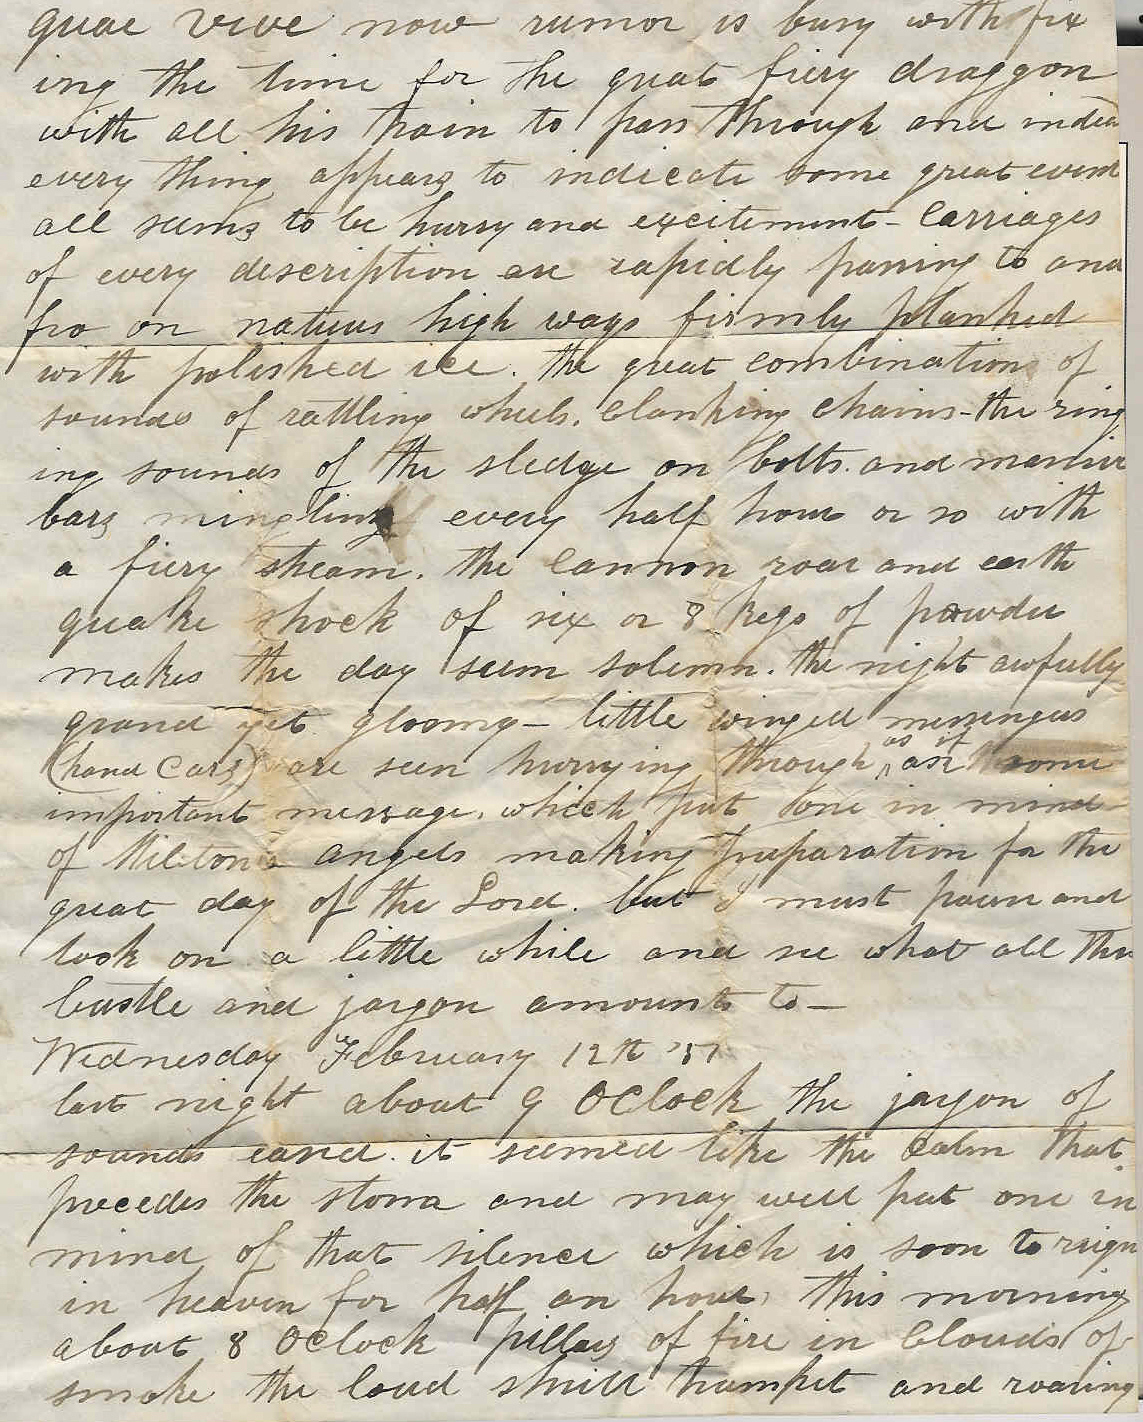 quae vive now rumor is busy with fix
ing the time for the great fiery draggon
with all his train to pass through and indeed
every thing appears to indicate some great event
all seems to be hurry and excitement - Carriages
of every description are rapidly passing to and
fro on natures high ways firmly planked
with polished ice. the great combinations of
sounds of rattling wheels. Clanking Chains - the ring
ing sounds of the sledge on bolts. and
bars mingling every half hour or so with
a fiery steam. the Cannon roar and earth
quake shock of six or 8 kegs of powder
makes the day seem solemn. the night awfully
grand yet gloomy - little winged messengers
(hand Cars) are seen hurrying through as if on some
important message. which put one in mind
of Milton's angels making preparation for the
great day of the Lord. but I must pause and
look on a little while and see what all this
bustle and jargon amounts to -
Wednesday February 12th '51
last night about 9 OClock the jargon of
sounds eased. it seemed like the Calm that
precedes the storm and may well put one in
mind of that silence which is soon to reign
in heaven for half an hour, this morning
about 8 OClock pillars of fire in Clouds of
smoke the loud shrill trumpet and roaring